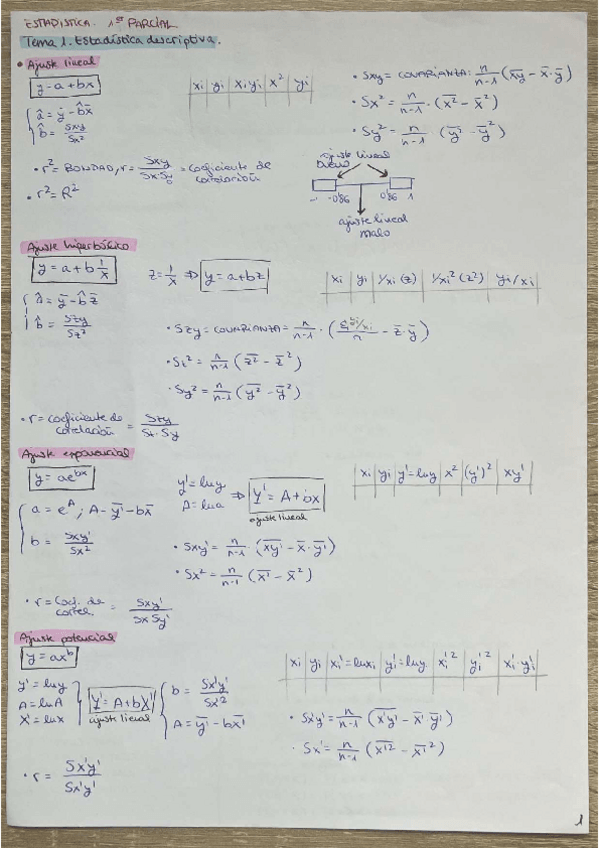 ESTADISTICA. 1er PARCIAL
Tema 1. Estadística descriptiva.
• Ajuste lineal
y = a + bx
â = ȳ - b̂x̄
b̂ = Sxy / Sx²
xi | yi | xi yi | x² | yi
• Sxy = COVARIANTA: n/n-1 (x̄ȳ - x̄ · ȳ)
• Sx² = n/n-1 · (x̄² - x̄²)
• Sy² = n/n-1 (ȳ² - ȳ²)
• r² = BONDAD, r = Sxy / Sx·Sy = coeficiente de correlación
• r² = R²
ajuste lineal bueno
-1 -0'86 0'86 1
ajuste lineal malo
Ajuste hiperbólico
y = a + b 1/x
z = 1/x ⇒ y = a + bz
xi | yi | 1/xi (z) | 1/xi² (z²) | yi/xi
â = ȳ - b̂ z̄
b̂ = Szy / Sz²
• Szy = COVARIANTA = n/n-1 · (Σyi/xi / n - z̄ · ȳ)
• Sz² = n/n-1 (z̄² - z̄²)
• Sy² = n/n-1 (ȳ² - ȳ²)
• r = coeficiente de correlación = Szy / Sz · Sy
Ajuste exponencial
y = ae^bx
y' = lny
A = lna
⇒ Y' = A + bx
ajuste lineal
xi | yi | y' = lny | x² | (y')² | xy'
a = e^A ; A - ȳ' - bx̄
b = Sxy' / Sx²
• Sxy' = n/n-1 · (x̄ȳ' - x̄ · ȳ')
• Sx² = n/n-1 (x̄' - x̄²)
• r = Coef. de correl = Sxy' / Sx Sy'
Ajuste potencial
y = ax^b
y' = lny
A = lnA
X' = lnx
Y' = A + bX'
ajuste lineal
b = Sx'y' / Sx²
A = ȳ' - bx̄'
xi | yi | xi' = lnxi | yi' = lny | xi'² | yi'² | xi' · yi'
• Sx'y' = n/n-1 (x̄'ȳ' - x̄' · ȳ')
• Sx' = n/n-1 (x̄'² - x̄'²)
• r = Sx'y' / Sx'y'
1